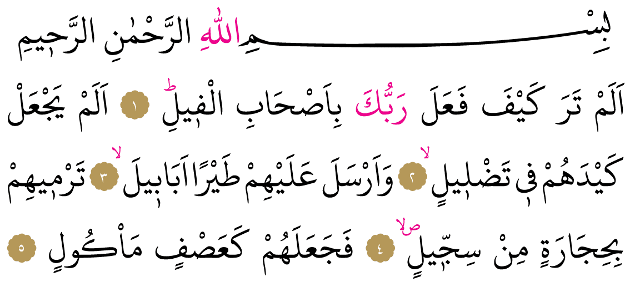 بِسْمِ اللّٰهِ الرَّحْمٰنِ الرَّح۪يمِ
اَلَمْ تَرَ كَيْفَ فَعَلَ رَبُّكَ بِاَصْحَابِ الْف۪يلِۜ ﴿١﴾ اَلَمْ يَجْعَلْ
كَيْدَهُمْ ف۪ي تَضْل۪يلٍۙ ﴿٢﴾ وَاَرْسَلَ عَلَيْهِمْ طَيْرًا اَبَاب۪يلَۙ ﴿٣﴾ تَرْم۪يهِمْ
بِحِجَارَةٍ مِنْ سِجّ۪يلٍۖۙ ﴿٤﴾ فَجَعَلَهُمْ كَعَصْفٍ مَأْكُولٍ ﴿٥﴾